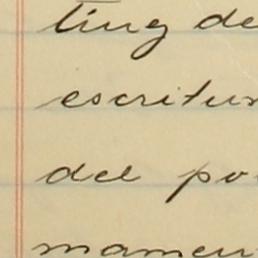 ting de
escritur
del po
mamen